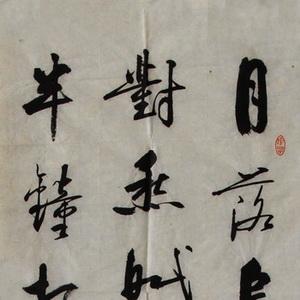 月落
對愁眠
半鐘